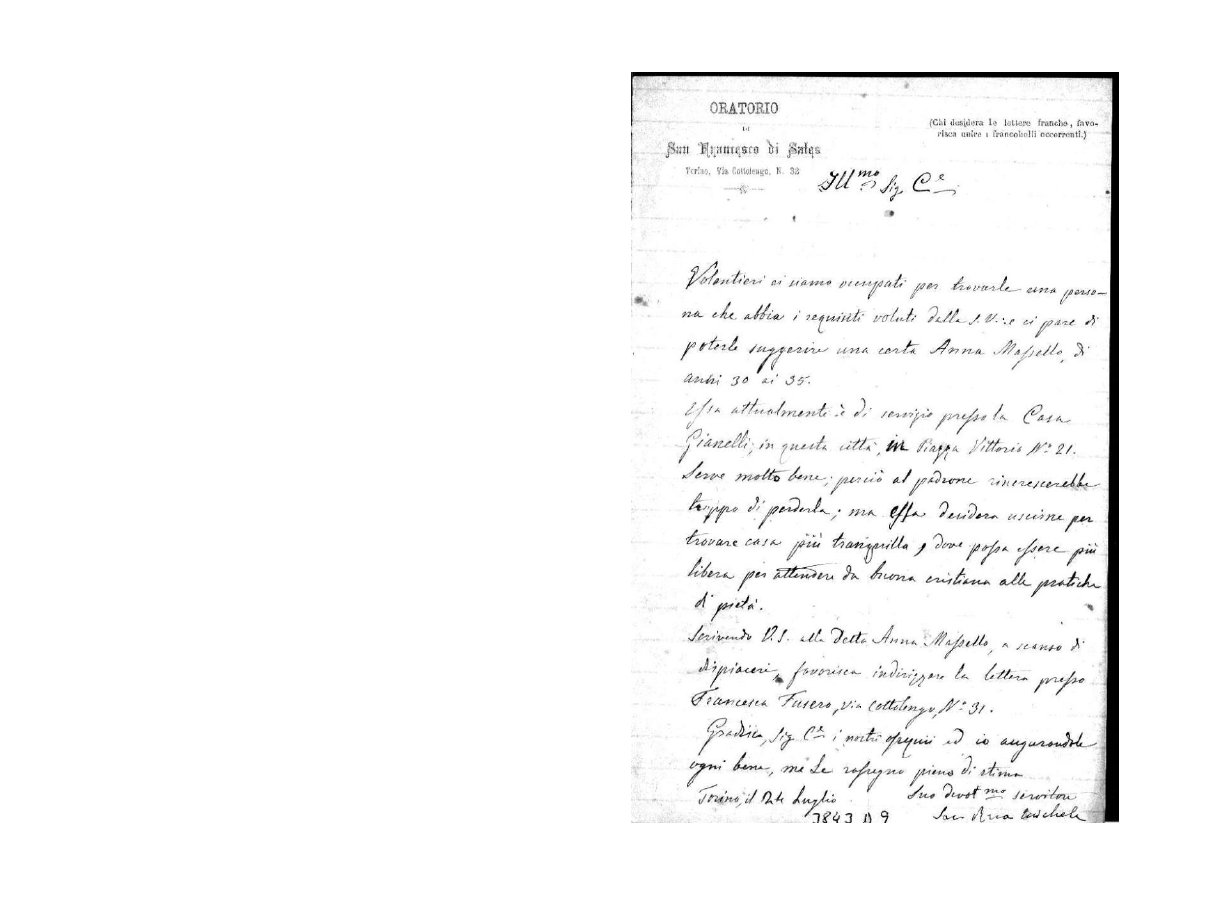 ORATORIO
DI
San Francesco di Sales
Torino, Via Cottolengo, N. 32
(Chi desidera le lettere franche, favo-
risca unire i francobolli occorrenti.)
Ill.mo Sig. C.e
Volontieri ci siamo occupati per trovarle una perso-
na che abbia i requisiti voluti dalla S.V.: e ci pare di
poterle suggerire una certa Anna Massello, di
anni 30 ai 35.
Essa attualmente è di servizio presso la Casa
Gianelli, in questa città, in Piazza Vittorio N.o 21.
Serve molto bene; perciò al padrone rincrescerebbe
troppo di perderla; ma essa desidera uscirne per
trovare casa più tranquilla, dove possa essere più
libera per attendere da buona cristiana alle pratiche
di pietà.
Scrivendo V.S. alla detta Anna Massello, a scanso di
dispiaceri, favorisca indirizzare la lettera presso
Francesca Fusero, via Cottolengo, N.o 31.
Gradisca, Sig. C.e i nostri ossequii ed io augurandole
ogni bene, me Le rassegno pieno di stima
Torino, il 24 Luglio
Suo devot.mo servitore
Sac. Rua Michele
3843 D 9